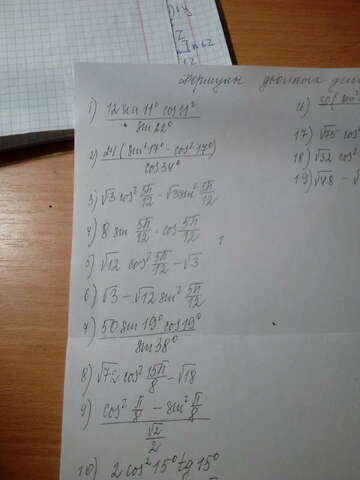 Формулы двойных
1) 12 sin 11° cos 11° / sin 22°
2) 24 (sin² 17° - cos² 17°) / cos 34°
3) √3 cos² 5π/12 - √3 sin² 5π/12
4) 8 sin 5π/12 · cos 5π/12
5) √12 cos² 5π/12 - √3
6) √3 - √12 sin² 5π/12
7) 50 sin 19° cos 19° / sin 38°
8) √72 cos² 15π/8 - √18
9) cos² π/8 - sin² π/8 / √2/2
10) 2 cos² 15° tg 15°
16)
17) √75 cos²
18) √32 cos²
19) √48 - √